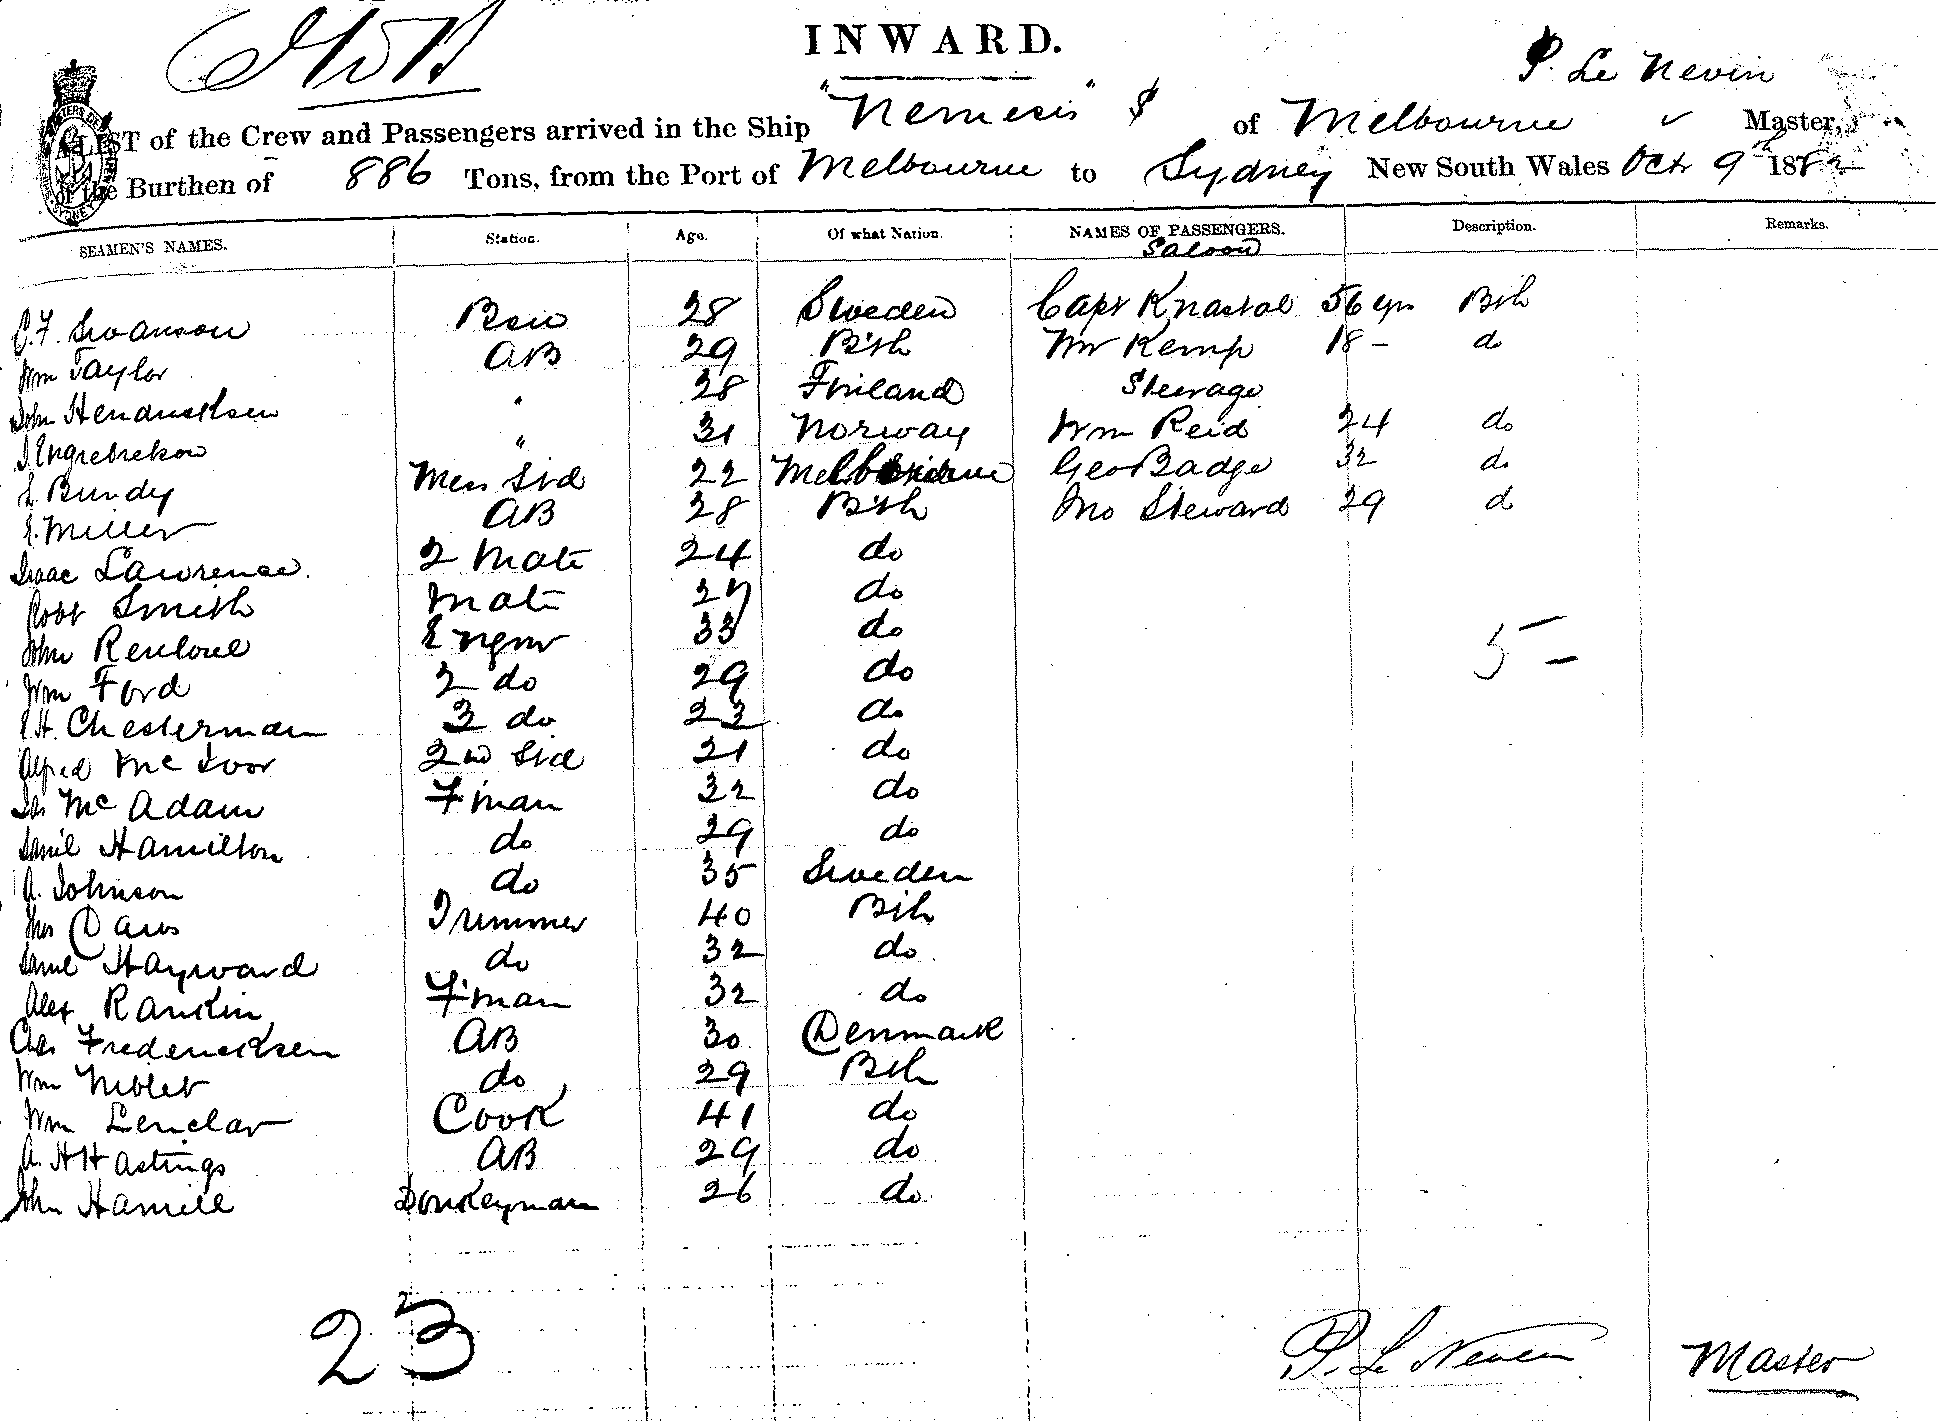 INWARD.
P. Le Nevin
LIST of the Crew and Passengers arrived in the Ship "Nemesis" S of Melbourne Master,
of the Burthen of 886 Tons, from the Port of Melbourne to Sydney New South Wales Octr 9th 1882
SEAMEN'S NAMES. Station. Age. Of what Nation. NAMES OF PASSENGERS. Description. Remarks.
Saloon
C.F. Swanson Bsn 28 Sweden Capt Knastal 56 yrs Bth
Wm Taylor AB 29 Btsh Mr Kemp 18 - do
John Hendricksen " 28 Finland Steerage
" 31 Norway Wm Reid 24 do
Bundy Mess Std 22 Melbourne Geo Badge 32 do
Miller AB 28 Btsh Jno Steward 29 do
Isaac Lawrence. 2 Mate 24 do
Robt Smith Mate 27 do
John Engnr 33 do
Wm Ford 2 do 29 do
H. Chesterman 3 do 22 do
Alfred McIvor 2nd Std 21 do
Jas McAdam F'man 32 do
Danil Hamilton do 29 do
A. Johnson do 35 Sweden
Davis Trimmer 40 Bth
Saml Hayward do 32 do
Alex Rankin F'man 32 do
Chas Fredericksen AB 30 Denmark
Wm Niblet do 29 Bth
Wm Cook 41 do
A. H Hastings AB 29 do
John Hamill Donkeyman 26 do
5 -
23
P. Le Neven Master